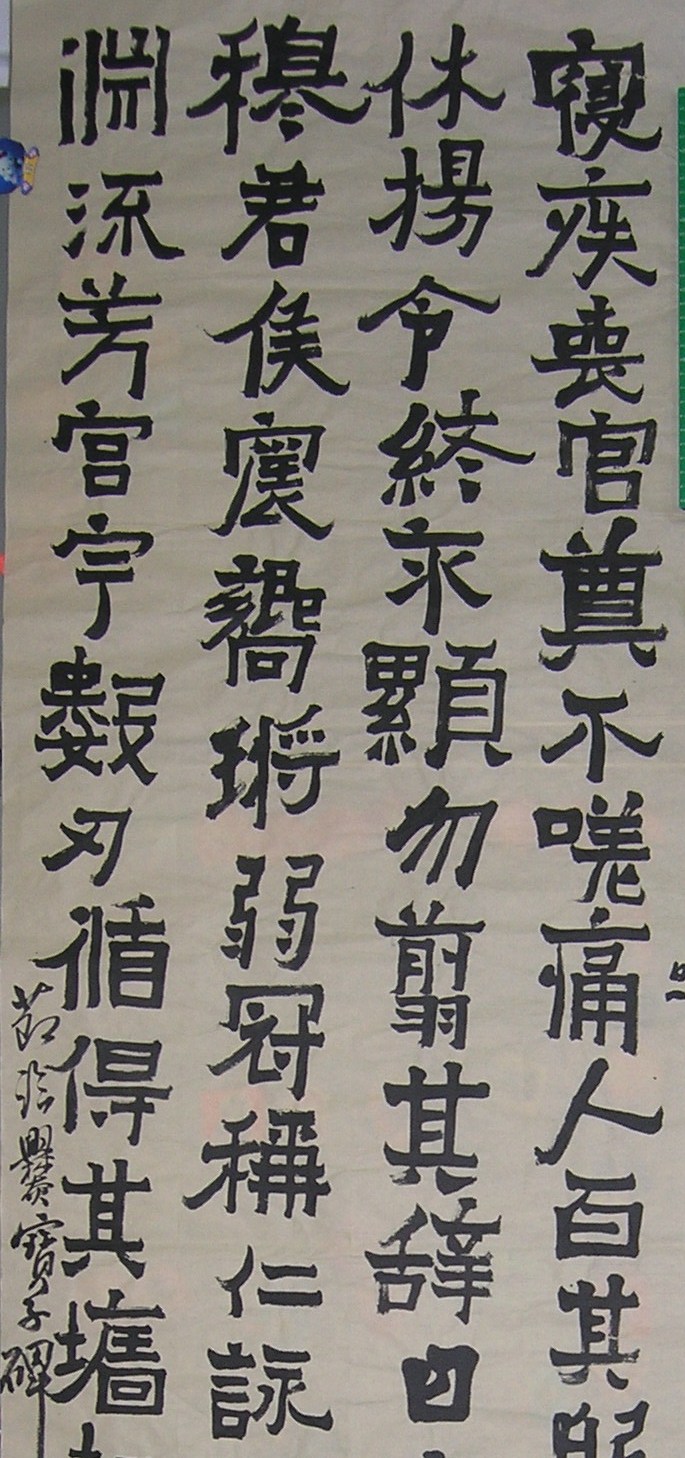 寢疾喪官奠不嗟痛人百其
休揚令終永顯勿翦其辭曰
穆君侯震響弱冠稱仁詠
淵流芳宮宇數刃循得其墻
節臨爨寶子碑